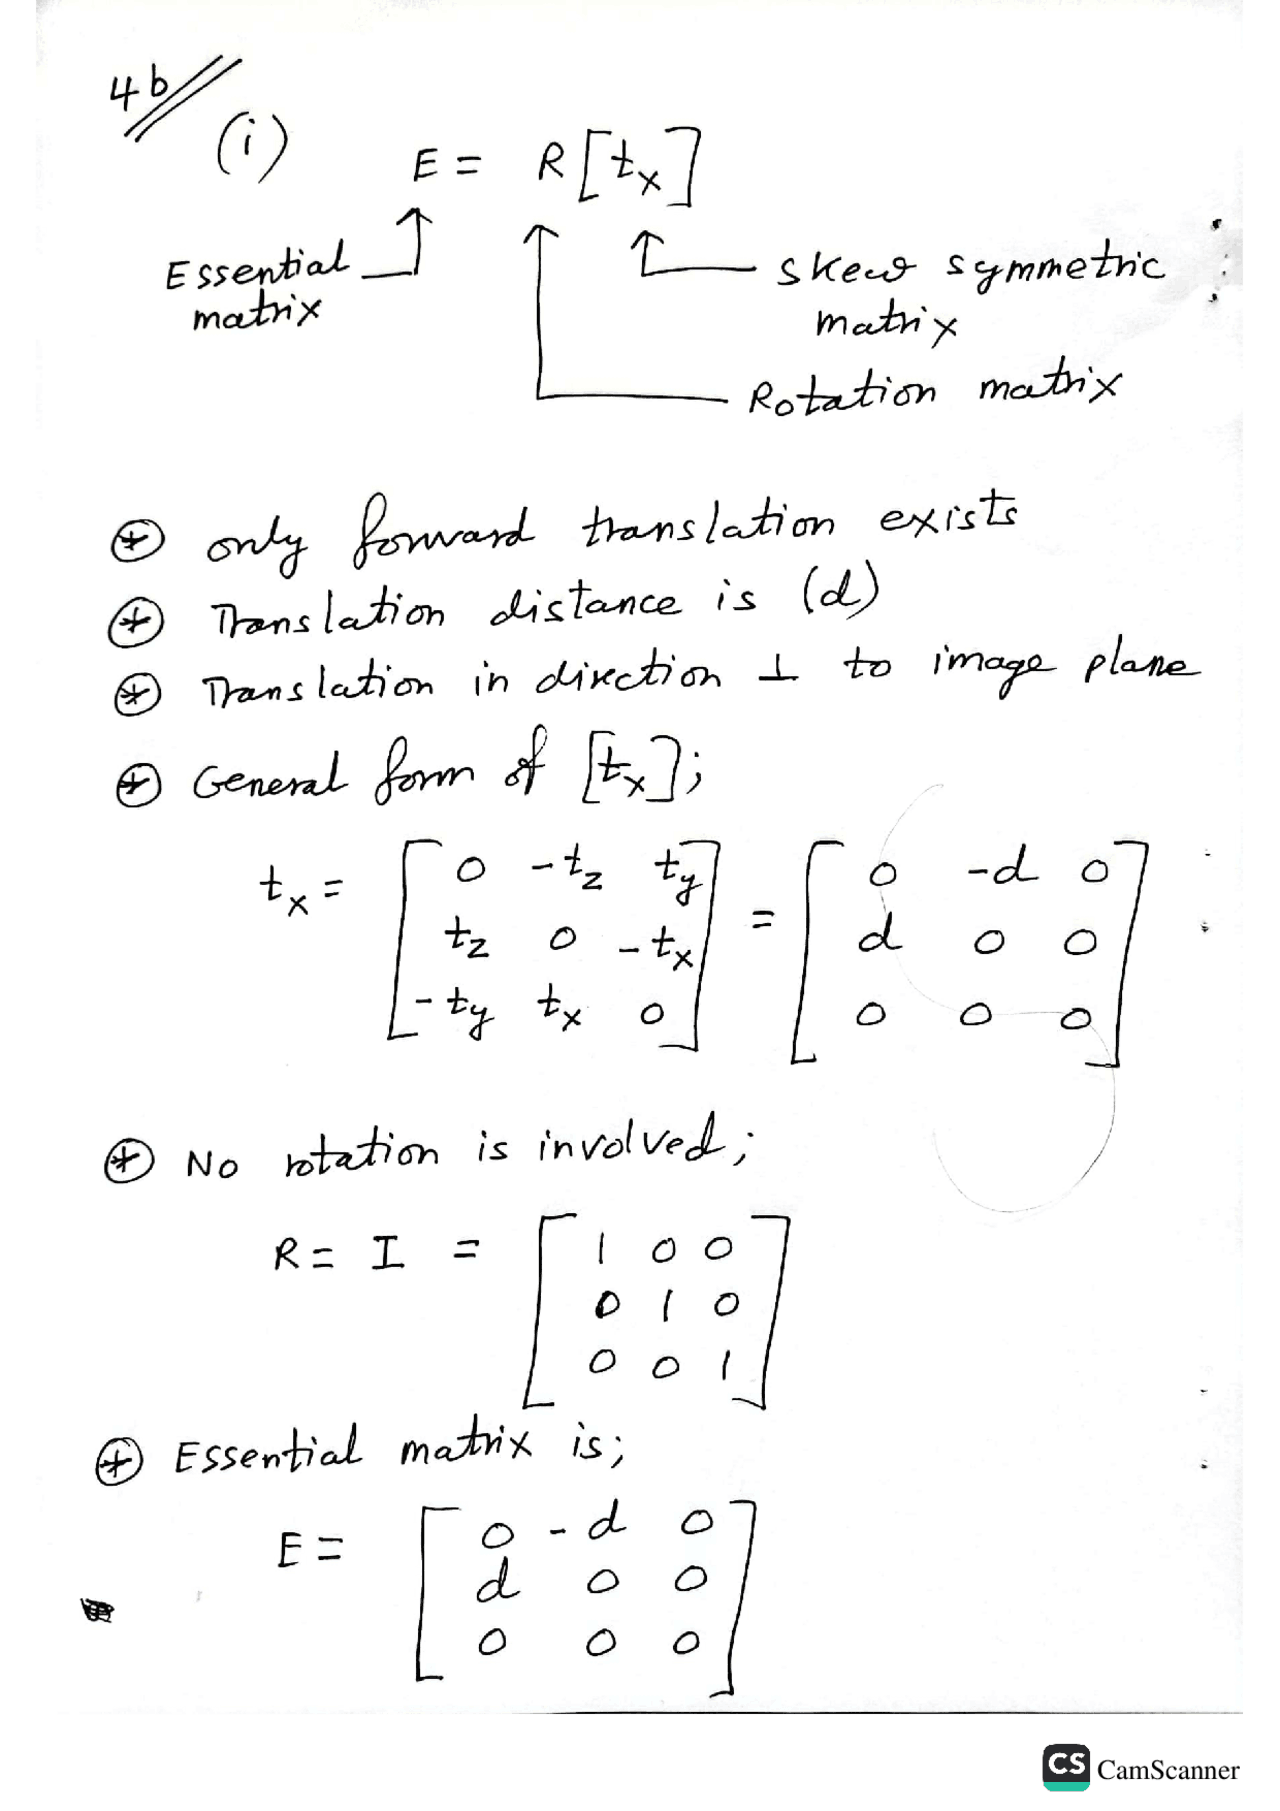 4b
(i)
E = R[tx]
Essential matrix
Skew symmetric matrix
Rotation matrix
⊛ only forward translation exists
⊛ Translation distance is (d)
⊛ Translation in direction ⊥ to image plane
⊛ General form of [tx];
tx = [ 0 -tz ty ] = [ 0 -d 0 ]
[ tz 0 -tx ] [ d 0 0 ]
[ -ty tx 0 ] [ 0 0 0 ]
⊛ No rotation is involved;
R = I = [ 1 0 0 ]
[ 0 1 0 ]
[ 0 0 1 ]
⊛ Essential matrix is;
E = [ 0 -d 0 ]
[ d 0 0 ]
[ 0 0 0 ]
CS CamScanner